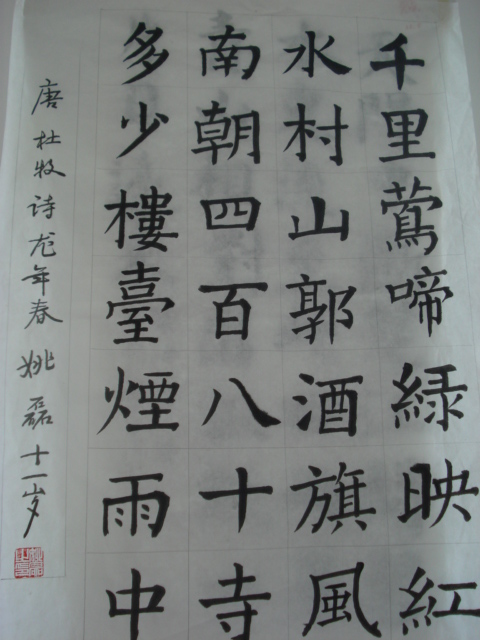 千里鶯啼綠映紅
水村山郭酒旗風
南朝四百八十寺
多少樓臺煙雨中
唐杜牧诗龙年春姚磊十一岁